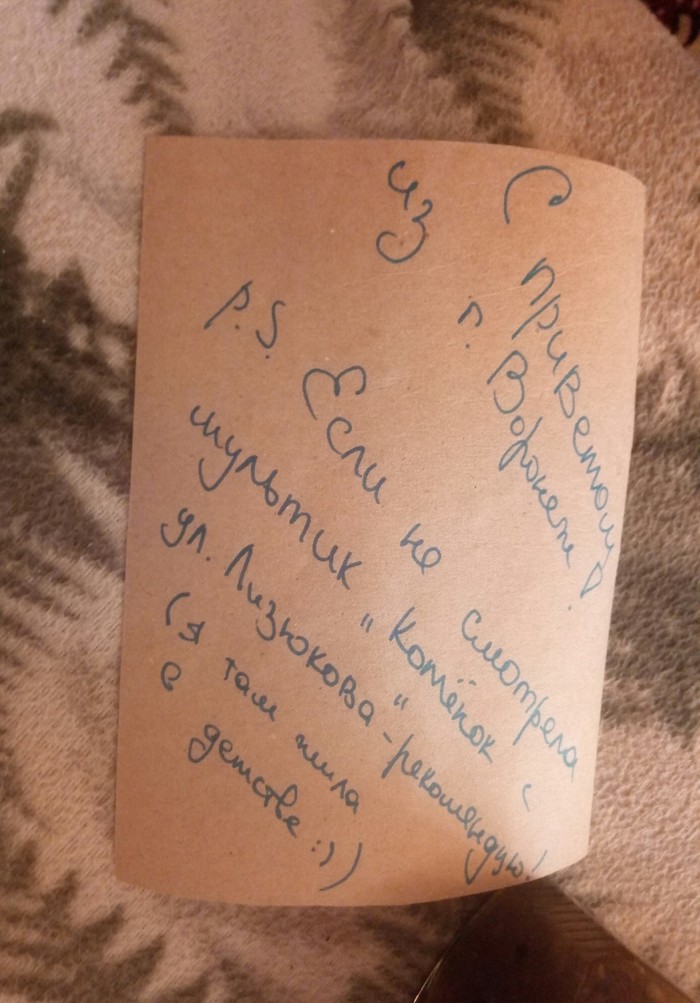 С приветом
из г. Воронеж!
P.S. Если не смотрела
мультик "Котёнок с
ул. Лизюкова" - рекомендую!
(я там жила
в детстве :))